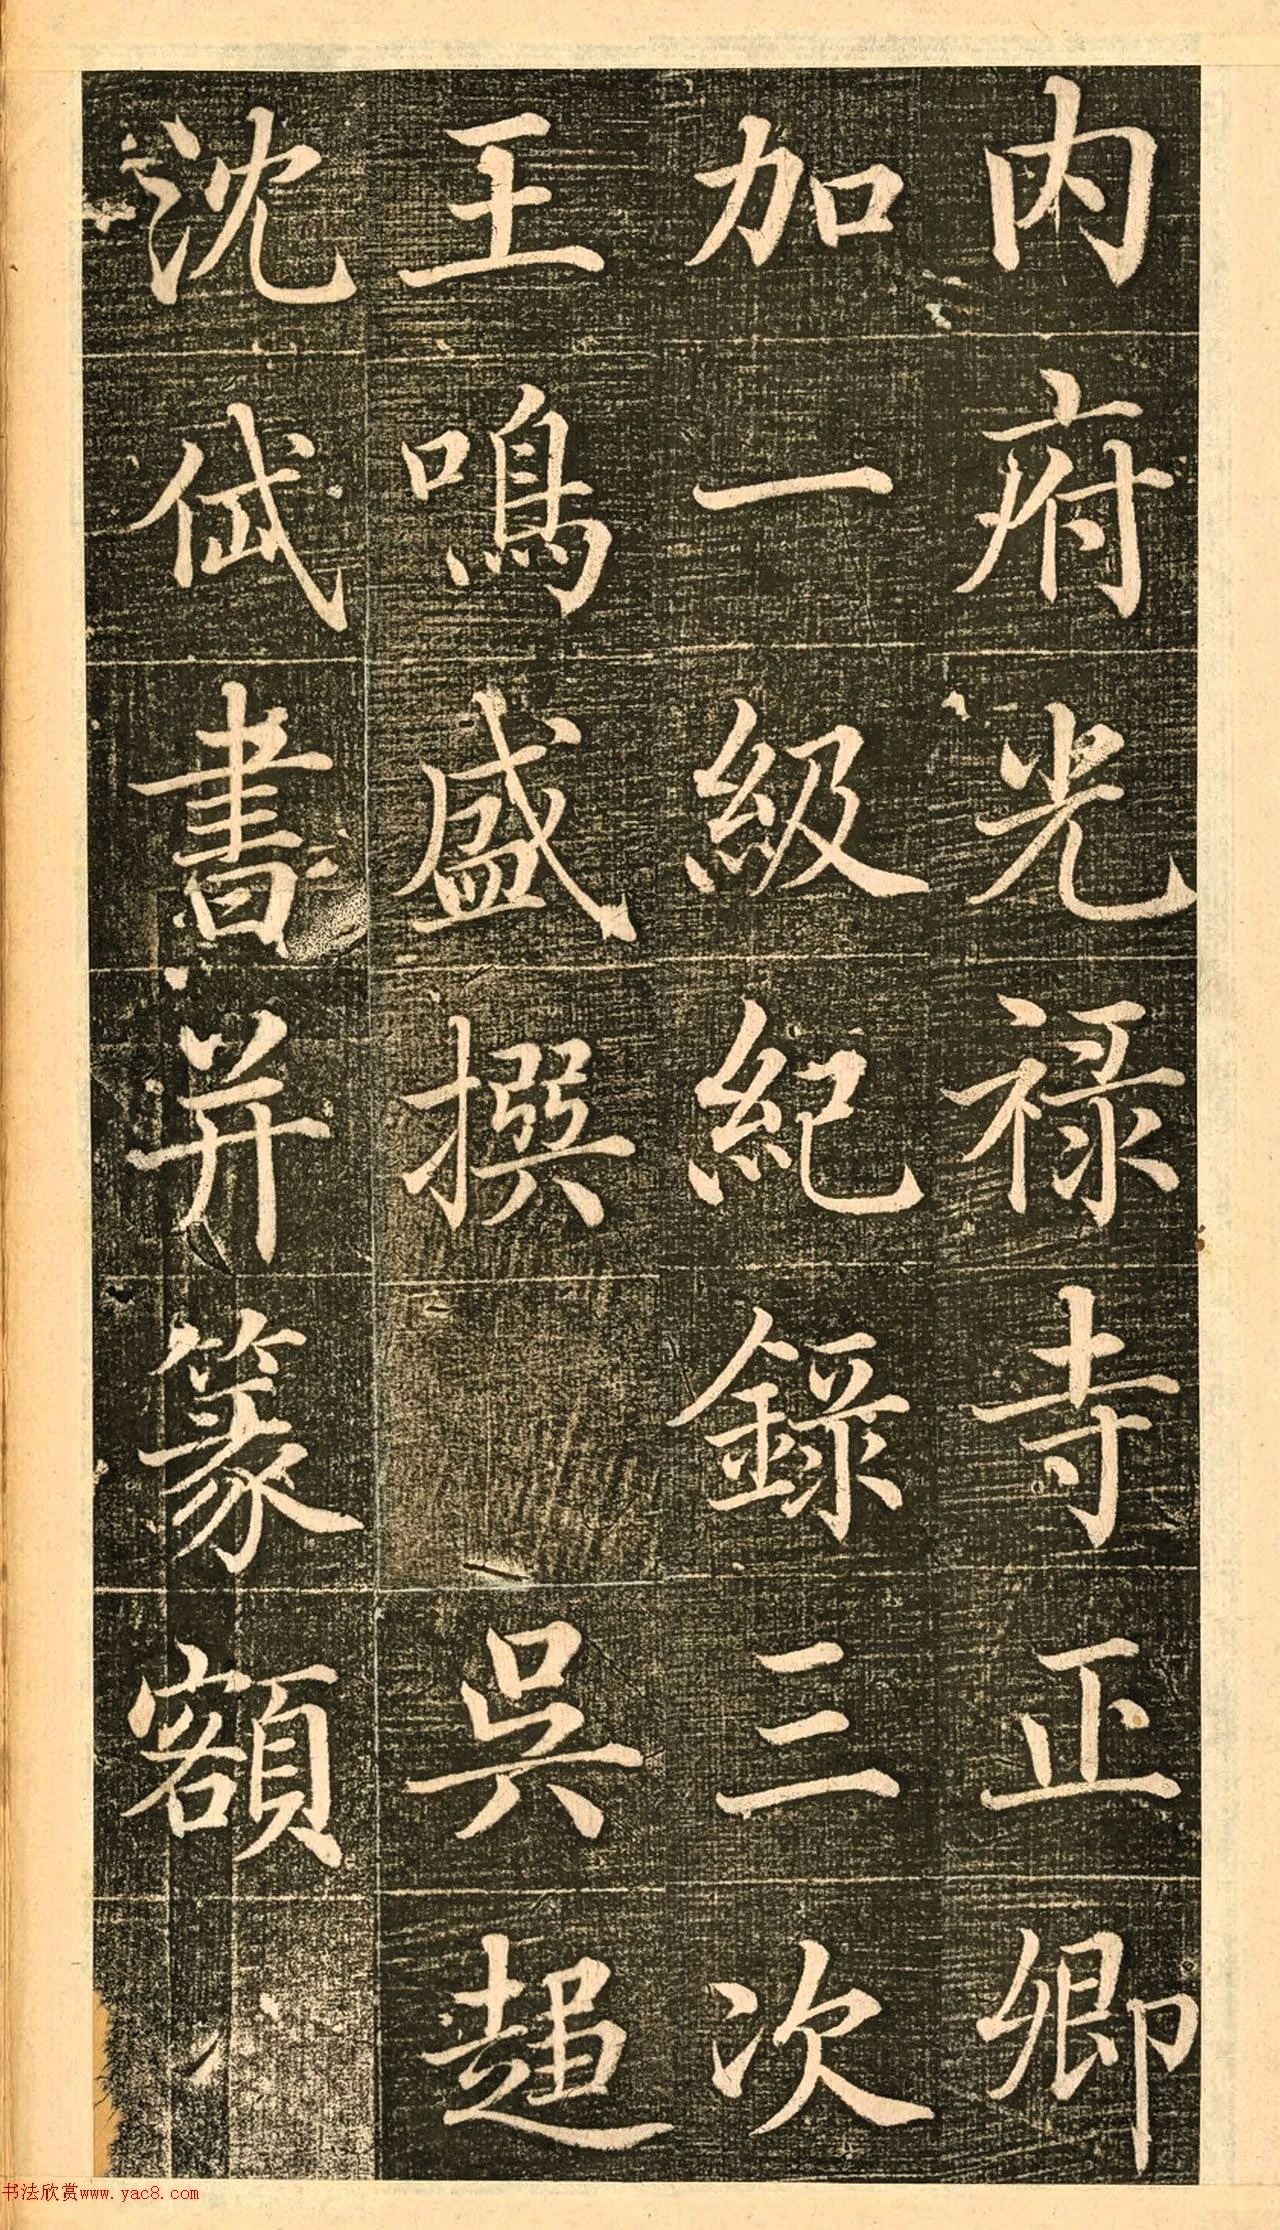 内府光禄寺正卿
加一級紀録三次
王鳴盛撰　吳趨
沈㦴書并篆額
书法欣赏www.yac8.com